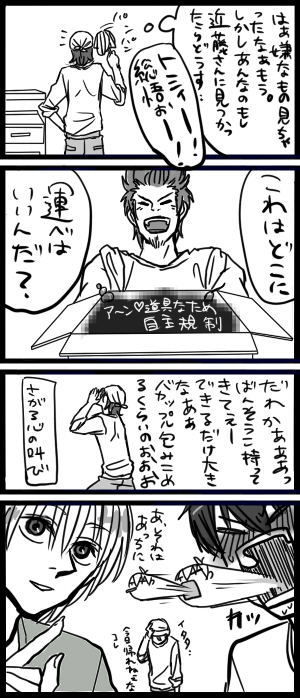 はぁ嫌なもの見ちゃ
ったなぁもう。
しかしあんなのもし
近藤さんに見つかっ
たらどうす…
トシィー!!
総悟ぉー!!
これはどこに
運べば
いいんだ?
アーン♡道具なため
自主規制
だれかあああっ
ばんそうこ持って
きてぇー
できるだけ大き
なあぁ
バカップル包みこめ
るくらいのおぉお
さがる心の叫び
あ、それは
あっちに
カッ
イタタ…
今日帰れねぇな
コレ